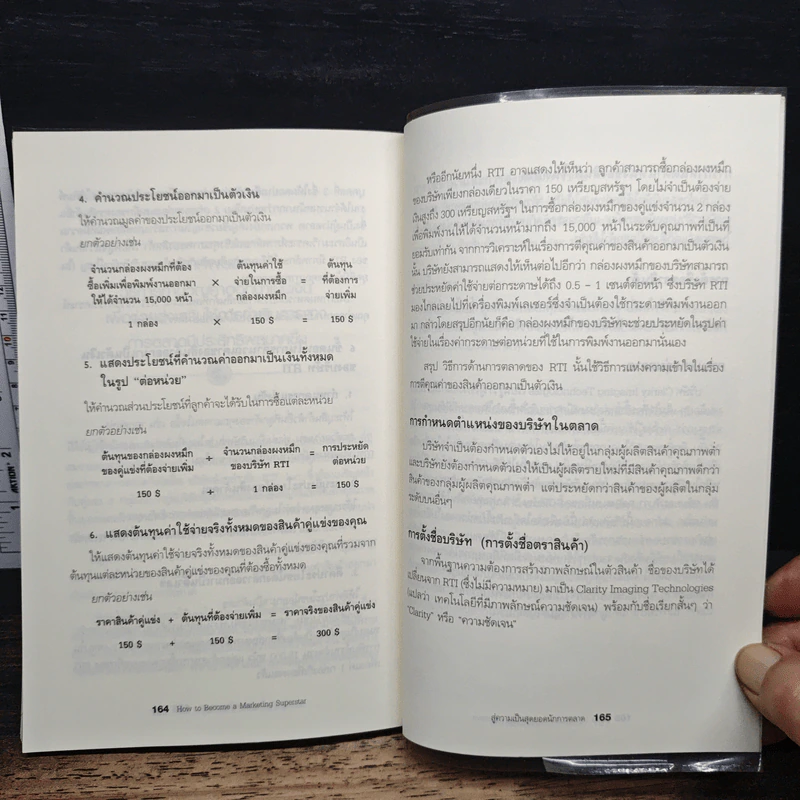 4. คำนวณประโยชน์ออกมาเป็นตัวเงิน
ให้คำนวณมูลค่าของประโยชน์ออกมาเป็นตัวเงิน
ยกตัวอย่างเช่น
จำนวนกล่องผงหมึกที่ต้อง ต้นทุนค่าใช้ ต้นทุน
ซื้อเพิ่มเพื่อพิมพ์งานออกมา × จ่ายในการซื้อ = ที่ต้องการ
ให้ได้จำนวน 15,000 หน้า กล่องผงหมึก จ่ายเพิ่ม
1 กล่อง × 150 $ = 150 $
5. แสดงประโยชน์ที่คำนวณค่าออกมาเป็นเงินทั้งหมด
ในรูป "ต่อหน่วย"
ให้คำนวณส่วนประโยชน์ที่ลูกค้าจะได้รับในการซื้อแต่ละหน่วย
ยกตัวอย่างเช่น
ต้นทุนของกล่องผงหมึก ÷ จำนวนกล่องผงหมึก = การประหยัด
ของคู่แข่งที่ต้องจ่ายเพิ่ม ของบริษัท RTI ต่อหน่วย
150 $ ÷ 1 กล่อง = 150 $
6. แสดงต้นทุนค่าใช้จ่ายจริงทั้งหมดของสินค้าคู่แข่งของคุณ
ให้แสดงต้นทุนค่าใช้จ่ายจริงทั้งหมดของสินค้าคู่แข่งของคุณที่รวมจาก
ต้นทุนแต่ละหน่วยของสินค้าคู่แข่งของคุณที่ต้องซื้อทั้งหมด
ยกตัวอย่างเช่น
ราคาสินค้าคู่แข่ง + ต้นทุนที่ต้องจ่ายเพิ่ม = ราคาจริงของสินค้าคู่แข่ง
150 $ + 150 $ = 300 $
164 How to Become a Marketing Superstar
หรืออีกนัยหนึ่ง RTI อาจแสดงให้เห็นว่า ลูกค้าสามารถซื้อกล่องผงหมึก
ของบริษัทเพียงกล่องเดียวในราคา 150 เหรียญสหรัฐฯ โดยไม่จำเป็นต้องจ่าย
เงินสูงถึง 300 เหรียญสหรัฐฯ ในการซื้อกล่องผงหมึกของคู่แข่งจำนวน 2 กล่อง
เพื่อพิมพ์งานให้ได้จำนวนหน้ามากถึง 15,000 หน้าในระดับคุณภาพที่เป็นที่
ยอมรับเท่ากัน จากการวิเคราะห์ในเรื่องการตีคุณค่าของสินค้าออกมาเป็นตัวเงิน
นั้น บริษัทยังสามารถแสดงให้เห็นต่อไปอีกว่า กล่องผงหมึกของบริษัทสามารถ
ช่วยประหยัดค่าใช้จ่ายต่อกระดาษได้ถึง 0.5 – 1 เซนต์ต่อหน้า ซึ่งบริษัท RTI
มองไกลเลยไปที่เครื่องพิมพ์เลเซอร์ซึ่งจำเป็นต้องใช้กระดาษพิมพ์งานออก
มา กล่าวโดยสรุปอีกนัยก็คือ กล่องผงหมึกของบริษัทจะช่วยประหยัดในรูปค่า
ใช้จ่ายในเรื่องค่ากระดาษต่อหน่วยที่ใช้ในการพิมพ์งานออกมานั่นเอง
สรุป วิธีการด้านการตลาดของ RTI นั้นใช้วิธีการแห่งความเข้าใจในเรื่อง
การตีคุณค่าของสินค้าออกมาเป็นตัวเงิน
การกำหนดตำแหน่งของบริษัทในตลาด
บริษัทจำเป็นต้องกำหนดตัวเองไม่ให้อยู่ในกลุ่มผู้ผลิตสินค้าคุณภาพต่ำ
และบริษัทยังต้องกำหนดตัวเองให้เป็นผู้ผลิตรายใหม่ที่มีสินค้าคุณภาพดีกว่า
สินค้าของกลุ่มผู้ผลิตคุณภาพต่ำ แต่ประหยัดกว่าสินค้าของผู้ผลิตในกลุ่ม
ระดับบนอื่นๆ
การตั้งชื่อบริษัท (การตั้งชื่อตราสินค้า)
จากพื้นฐานความต้องการสร้างภาพลักษณ์ในตัวสินค้า ชื่อของบริษัทได้
เปลี่ยนจาก RTI (ซึ่งไม่มีความหมาย) มาเป็น Clarity Imaging Technologies
(แปลว่า เทคโนโลยีที่มีภาพลักษณ์ความชัดเจน) พร้อมกับชื่อเรียกสั้นๆ ว่า
"Clarity" หรือ "ความชัดเจน"
สู่ความเป็นสุดยอดนักการตลาด 165